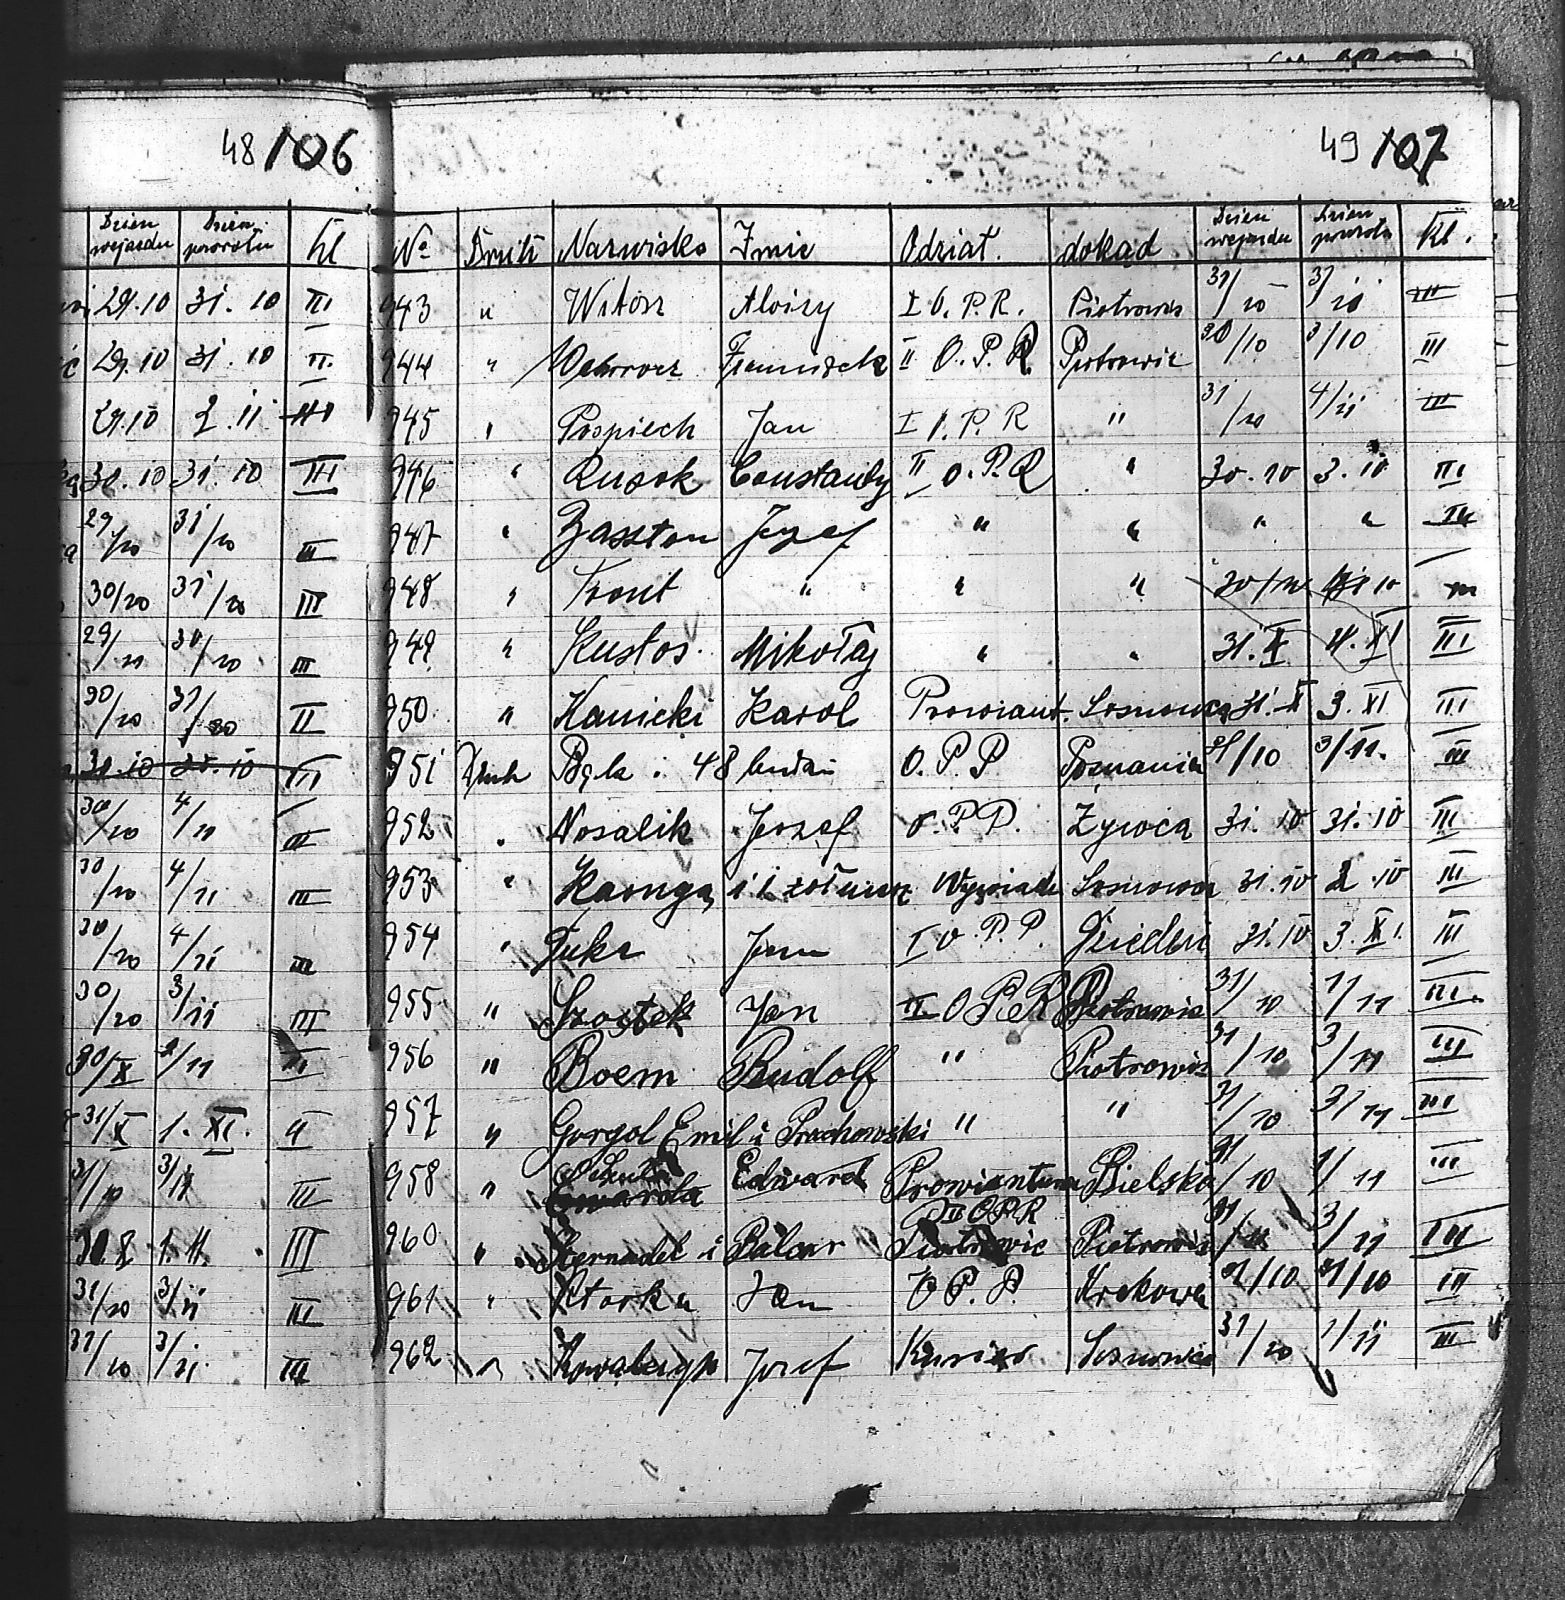 48 106
Dzien wejazdu Dzien powrotu Kl
29.10 31.10 III
29.10 31.10 II.
29.10 2.11 III
30.10 31.10 III
29/10 31/10 III
30/10 31/10 III
29/10 30/10 III
30/10 31/10 II
31.10 31.10 III
30/10 4/11 III
30/10 4/11 III
30/10 4/11 III
30/10 3/11 III
30/X 2/11 II
31/X 1.XI. II
31/10 3/11 III
III
31/10 3/11 III
31/10 3/11 III
49 107
No Druch Nazwisko Imie Odziat. dokąd Dzien wejazdu Dzien powrotu Kl.
943 " Witosz Aloizy I O.P.R. Piotrowic 31/10 III
944 " Franciszek II O.P.R. Piotrowic 30/10 3/10 III
945 " Pospiech Jan I O.P.R " 31/10 4/11 III
946 " Rusok Constanty II O.P.R " 30.10 3.10 III
947 " Zasston Jozef " " " " III
948 " Front " " " III
949 " Kustos Mikołaj " " 31.X 4.XI III
950 " Kanicki Karol Prowiant. Sosnowca 31.X 3.XI III
951 Druh Bąk i 48 ludzi O.P.P Poznania 31/10 3/11. III
952 " Nosalik Jozef O.P.P. Żywca 31.10 31.10 III
953 " i 1 żołnierz Wywiadu Sosnowca 31.10 2.10 III
954 " Jan I O.P.P. Dziedzic 31.10 3.XI. III
955 " Szostek Jan II O.P.R Piotrowic 31/10 1/11 III.
956 " Boem Rudolf " Piotrowic 31/10 3/11 III
957 " Gorgol Emil i Prochowski " " 31/10 3/11 III
958 " Edward Prowiantura Bielsko 31/10 1/11 III
II O.P.R
960 " i Piotrowic 3/11 III
961 " Jan O.P.P. Krakowa 31/10 31/10 III
962 " Kowalczyk Jozef Kurier Sosnowiec 31/10 1/11 III